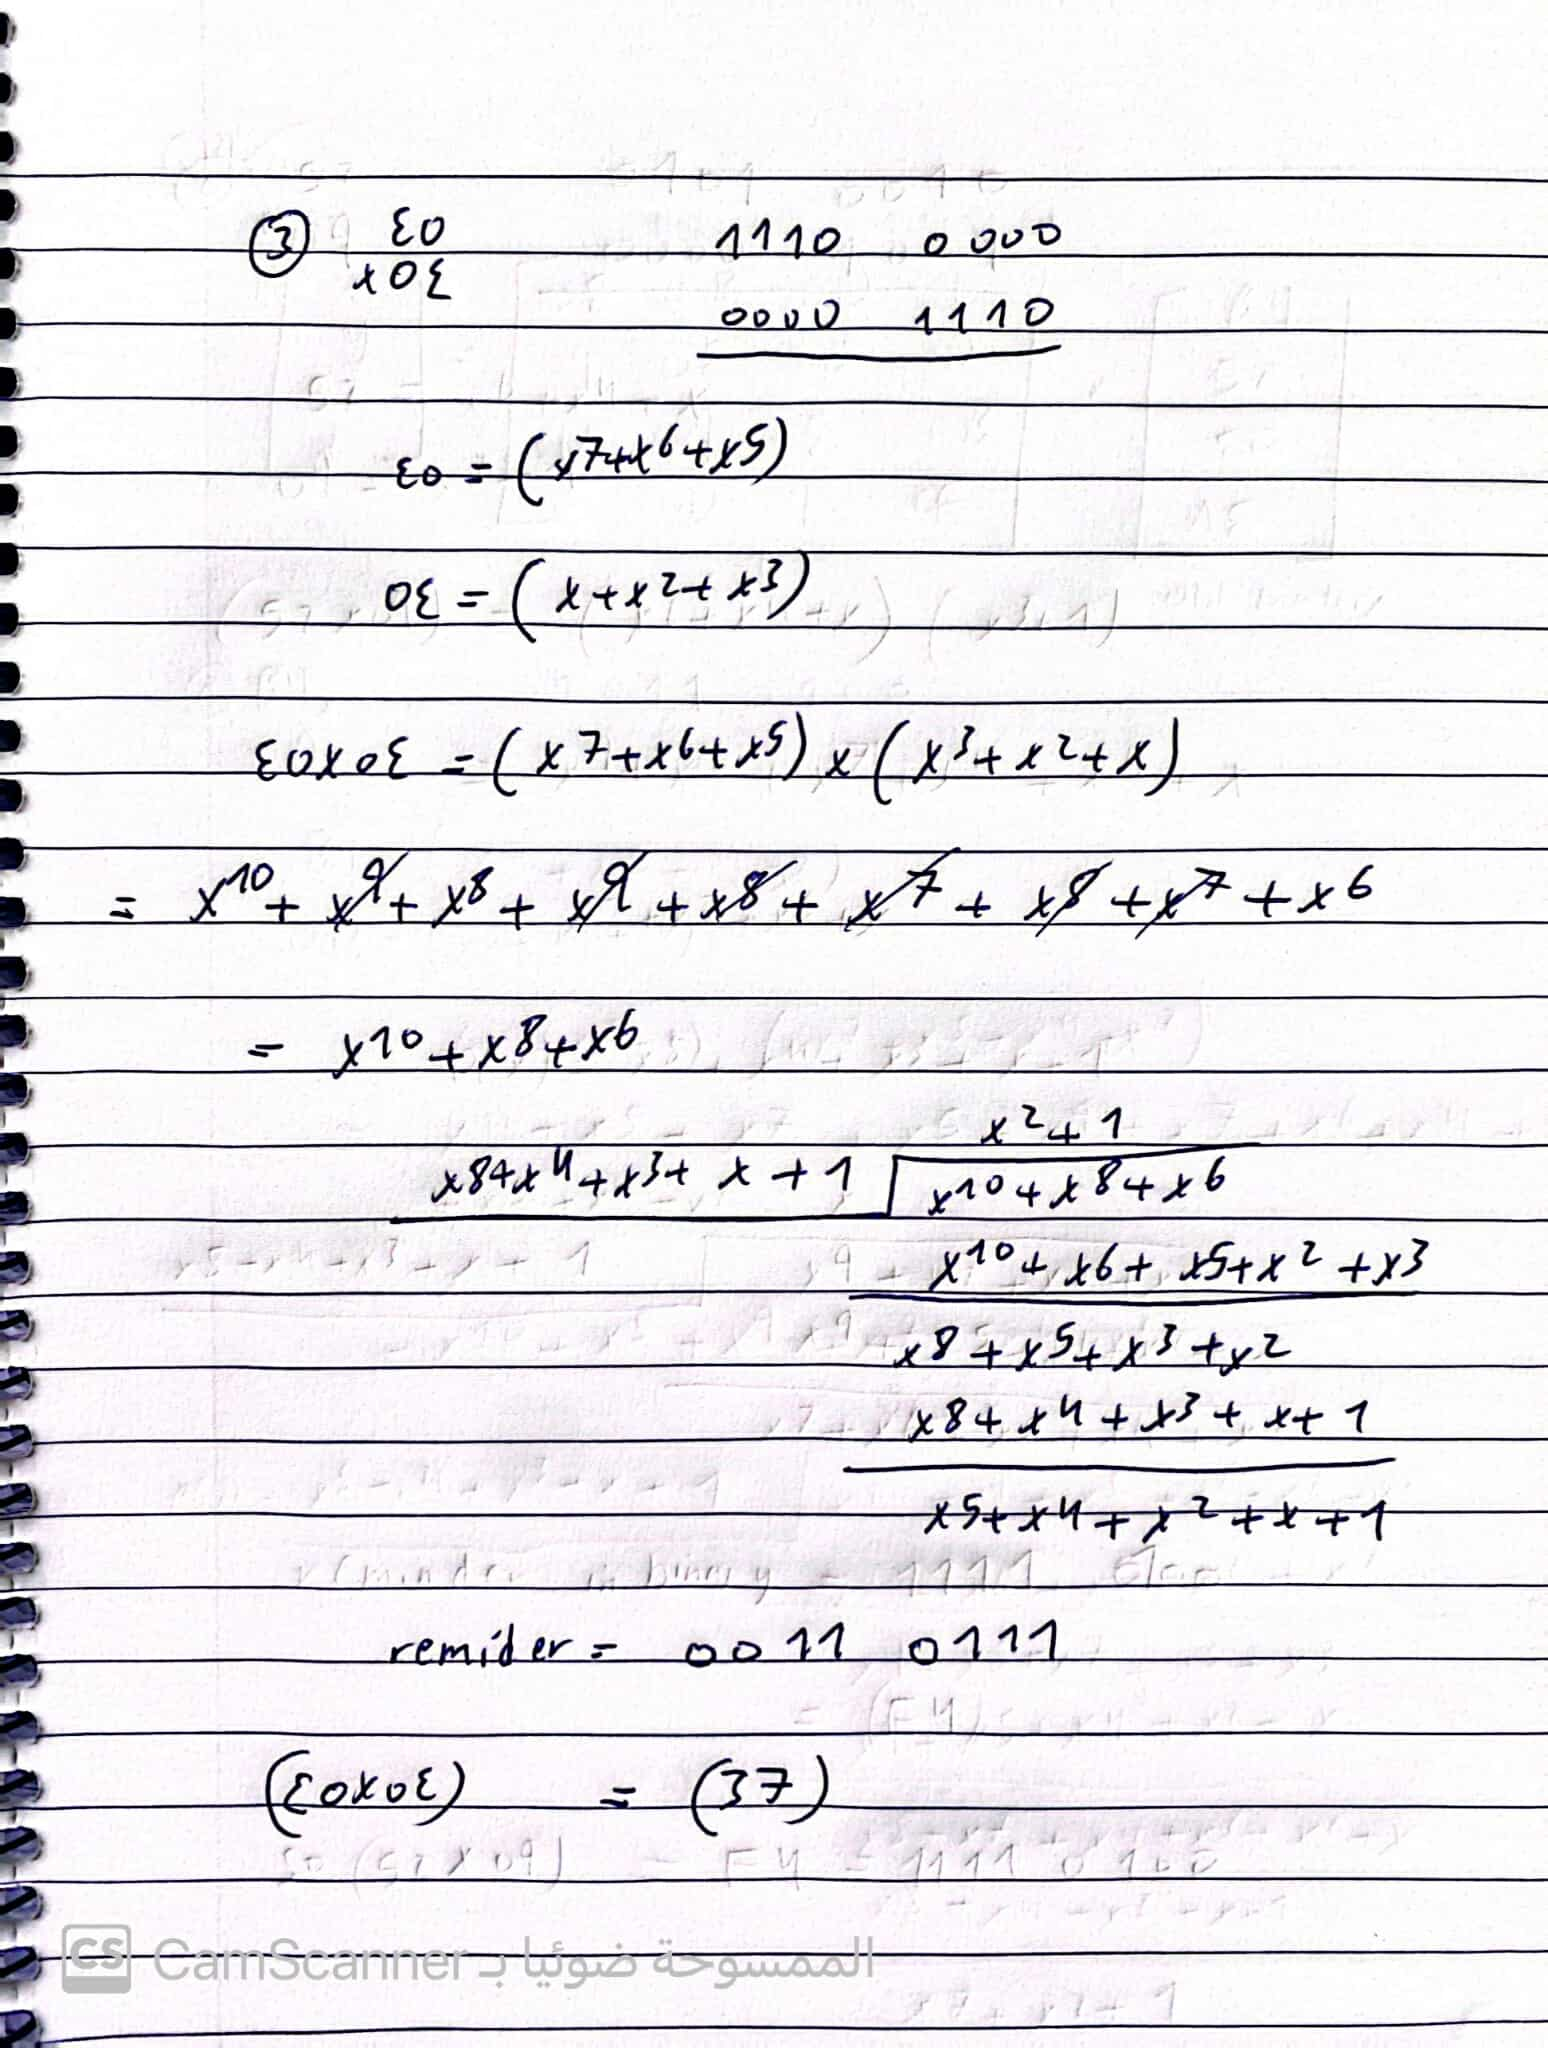 ③ E0 1110 0000
x0E
0000 1110
E0 = (x7+x6+x5)
0E = (x+x2+x3)
E0x0E = (x7+x6+x5) x (x3+x2+x)
= x10 + x9 + x8 + x9 + x8 + x7 + x8 + x7 + x6
= x10 + x8 + x6
x2+1
x8+x4+x3+ x +1 x10+x8+x6
x10+x6+ x5+x2 +x3
x8+x5+x3+x2
x8+x4+x3+x+1
x5+x4+x2+x+1
remider = 0011 0111
(E0x0E) = (37)
CS CamScanner الممسوحة ضوئيا بـ